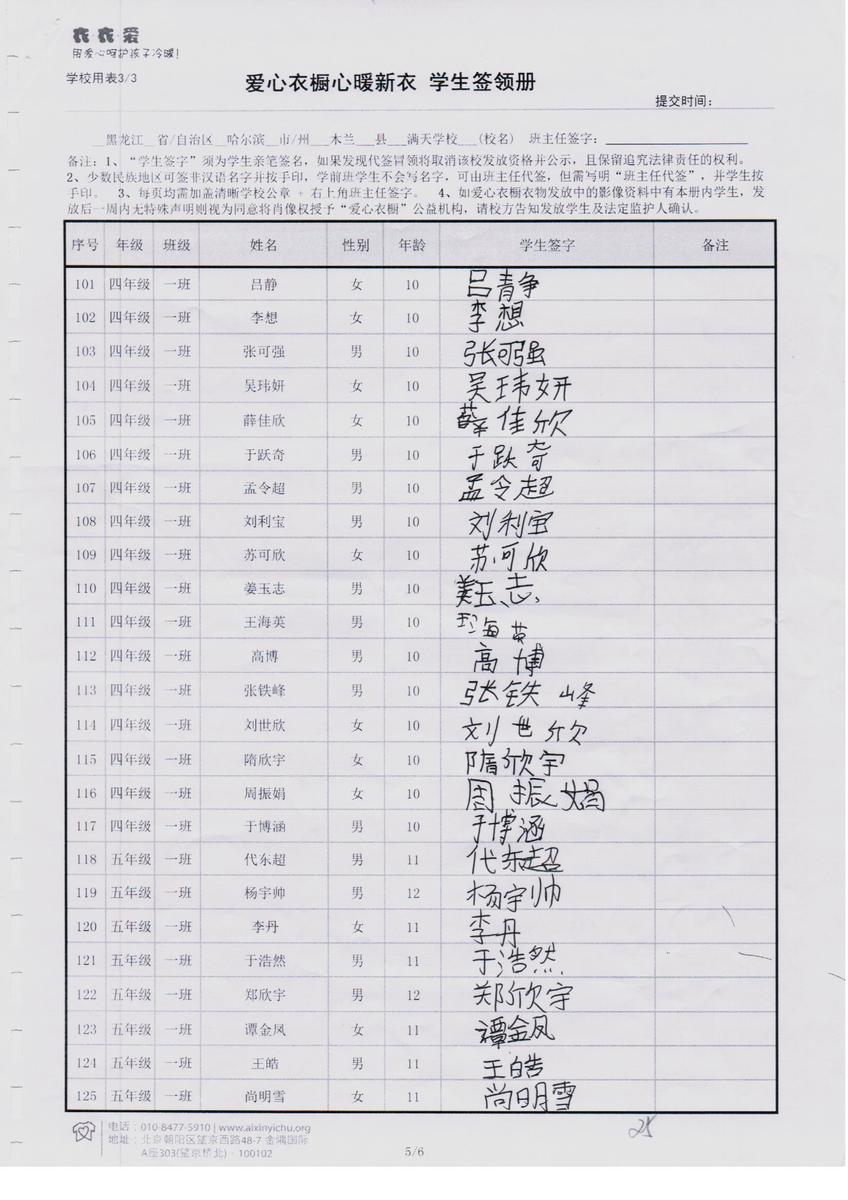 衣衣爱
用爱心呵护孩子冷暖!
学校用表3/3
爱心衣橱心暖新衣 学生签领册
提交时间:
__黑龙江__省/自治区__哈尔滨__市/州___木兰___县___满天学校___(校名) 班主任签字:
备注:1、“学生签字”须为学生亲笔签名,如果发现代签冒领将取消该校发放资格并公示,且保留追究法律责任的权利。
2、少数民族地区可签非汉语名字并按手印,学前班学生不会写名字,可由班主任代签,但需写明“班主任代签”,并学生按
手印。 3、每页均需加盖清晰学校公章 + 右上角班主任签字。 4、如爱心衣橱衣物发放中的影像资料中有本册内学生,发
放后一周内无特殊声明则视为同意将肖像权授予“爱心衣橱”公益机构,请校方告知发放学生及法定监护人确认。
序号 年级 班级 姓名 性别 年龄 学生签字 备注
101 四年级 一班 吕静 女 10 吕青争
102 四年级 一班 李想 女 10 李想
103 四年级 一班 张可强 男 10 张可强
104 四年级 一班 吴玮妍 女 10 吴玮妍
105 四年级 一班 薛佳欣 女 10 薛佳欣
106 四年级 一班 于跃奇 男 10 于跃奇
107 四年级 一班 孟令超 男 10 孟令超
108 四年级 一班 刘利宝 男 10 刘利宝
109 四年级 一班 苏可欣 女 10 苏可欣
110 四年级 一班 姜玉志 男 10 姜玉志
111 四年级 一班 王海英 男 10 王海英
112 四年级 一班 高博 男 10 高博
113 四年级 一班 张铁峰 男 10 张铁峰
114 四年级 一班 刘世欣 女 10 刘世欣
115 四年级 一班 隋欣宇 女 10 隋欣宇
116 四年级 一班 周振娟 女 10 周振娟
117 四年级 一班 于博涵 男 10 于博涵
118 五年级 一班 代东超 男 11 代东超
119 五年级 一班 杨宇帅 男 12 杨宇帅
120 五年级 一班 李丹 女 11 李丹
121 五年级 一班 于浩然 男 11 于浩然
122 五年级 一班 郑欣宇 男 12 郑欣宇
123 五年级 一班 谭金凤 女 11 谭金凤
124 五年级 一班 王皓 男 11 王皓
125 五年级 一班 尚明雪 女 11 尚明雪
电话:010-8477-5910 | www.aixinyichu.org
地址:北京朝阳区望京西路48-7 金隅国际
A座303(望京桥北)· 100102
25
5/6